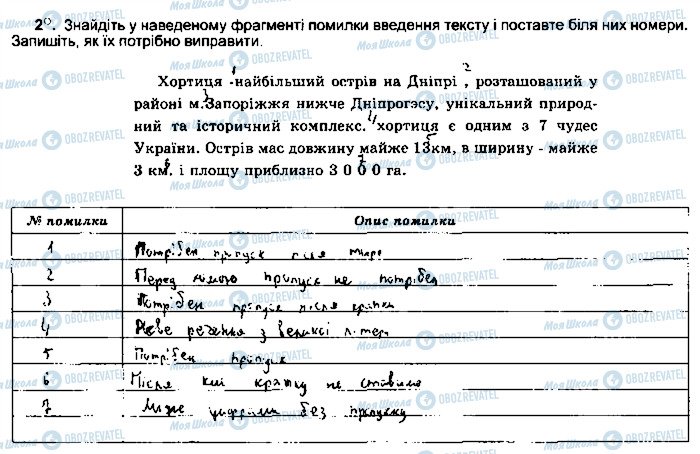 2°. Знайдіть у наведеному фрагменті помилки введення тексту і поставте біля них номери.
Запишіть, як їх потрібно виправити.
1 2
Хортиця -найбільший острів на Дніпрі , розташований у
3
районі м.Запоріжжя нижче Дніпрогэсу, унікальний природ-
4
ний та історичний комплекс. хортиця є одним з 7 чудес
5
України. Острів має довжину майже 13км, в ширину - майже
6 7
3 км. і площу приблизно 3 0 0 0 га.
№ помилки Опис помилки
1 Потрібен пропуск після тире
2 Перед комою пропуск не потрібен
3 Потрібен пропуск після крапки
4 Нове речення з великої літери
5 Потрібен пропуск
6 Після км крапку не ставимо
7 Між цифрами без пропуску
Моя Школа OBOZREVATEL